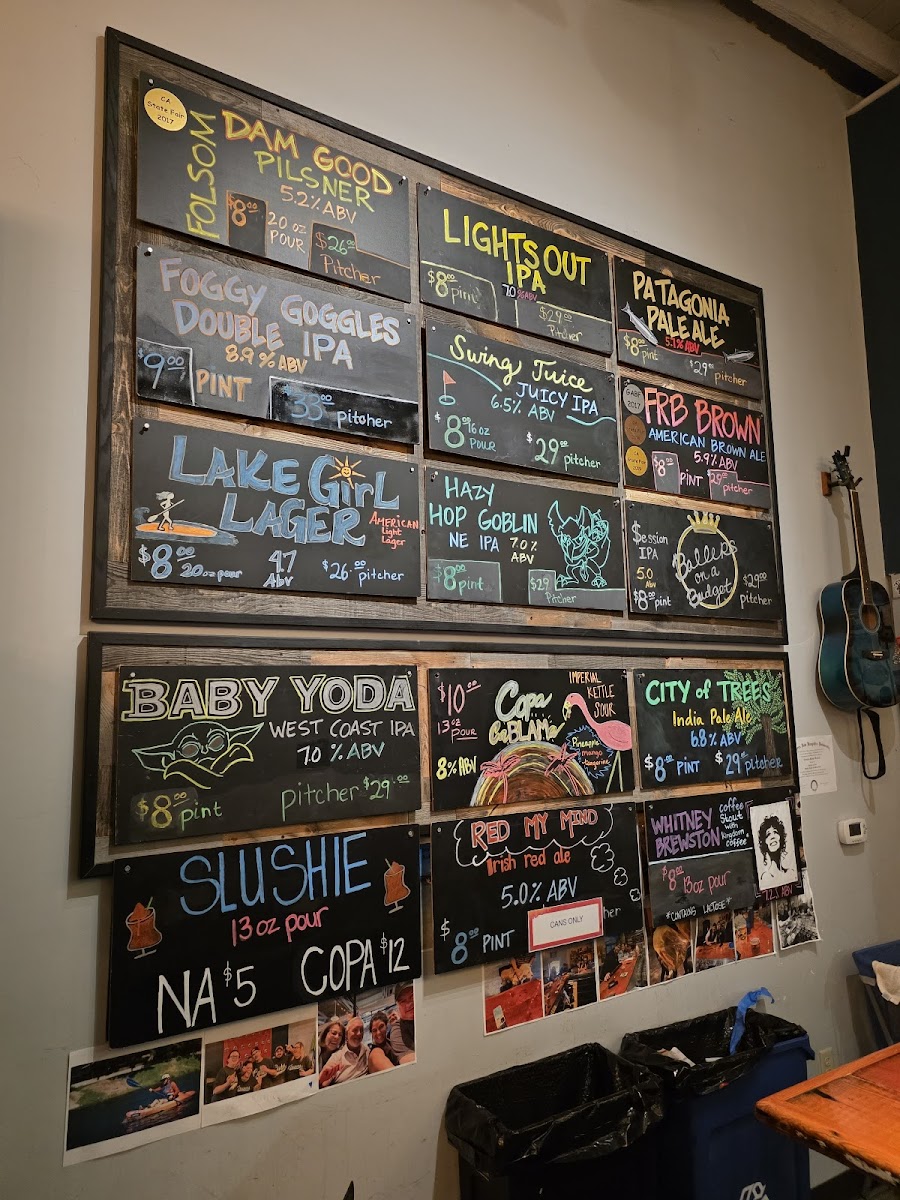 CA
State Fair
2017
FOLSOM
DAM GOOD
PILSNER
5.2% ABV
$8.00
20 oz
POUR
$26.00
Pitcher
LIGHTS OUT
IPA
7.0 % ABV
$8.00 pint
$29.00
Pitcher
PATAGONIA
PALE ALE
5.1% ABV
$8.00
pint
$29.00 pitcher
FOGGY GOGGLES
DOUBLE IPA
8.9% ABV
$9.00
PINT
$33.00 pitcher
Swing Juice
JUICY IPA
6.5% ABV
$8.00 16 oz
POUR
$29.00 pitcher
GABF
2017
FRB BROWN
AMERICAN BROWN ALE
5.9% ABV
$8.00
PINT
29.00
pitcher
LAKE GIRL
LAGER
AMERICAN
light
lager
$8.00 20oz pour
4.7
Abv
$26.00 pitcher
HAZY
HOP GOBLIN
NE IPA
7.0%
ABV
$8.00 pint
$29
Pitcher
$ession
IPA
5.0
ABV
$8.00 pint
Ballers
on a
Budget
$29.00
pitcher
BABY YODA
WEST COAST IPA
7.0 % ABV
$8.00 pint
pitcher $29.00
$10.00
13oz
POUR
8% ABV
Copa
CaBLAMa
IMPERIAL
KETTLE
SOUR
Pineapple
mango
tangerine
CITY of TREES
India Pale Ale
6.8% ABV
$8.00 PINT
$29.00 pitcher
SLUSHIE
13 oz pour
NA $5
COPA $12
RED MY MIND
Irish red ale
5.0% ABV
$8.00 PINT
CANS ONLY
her
WHITNEY
BREWSTON
coffee
Stout
with
Kingdom
coffee
$8.00
13oz pour
*CONTAINS LACTOSE*
7.2% ABV